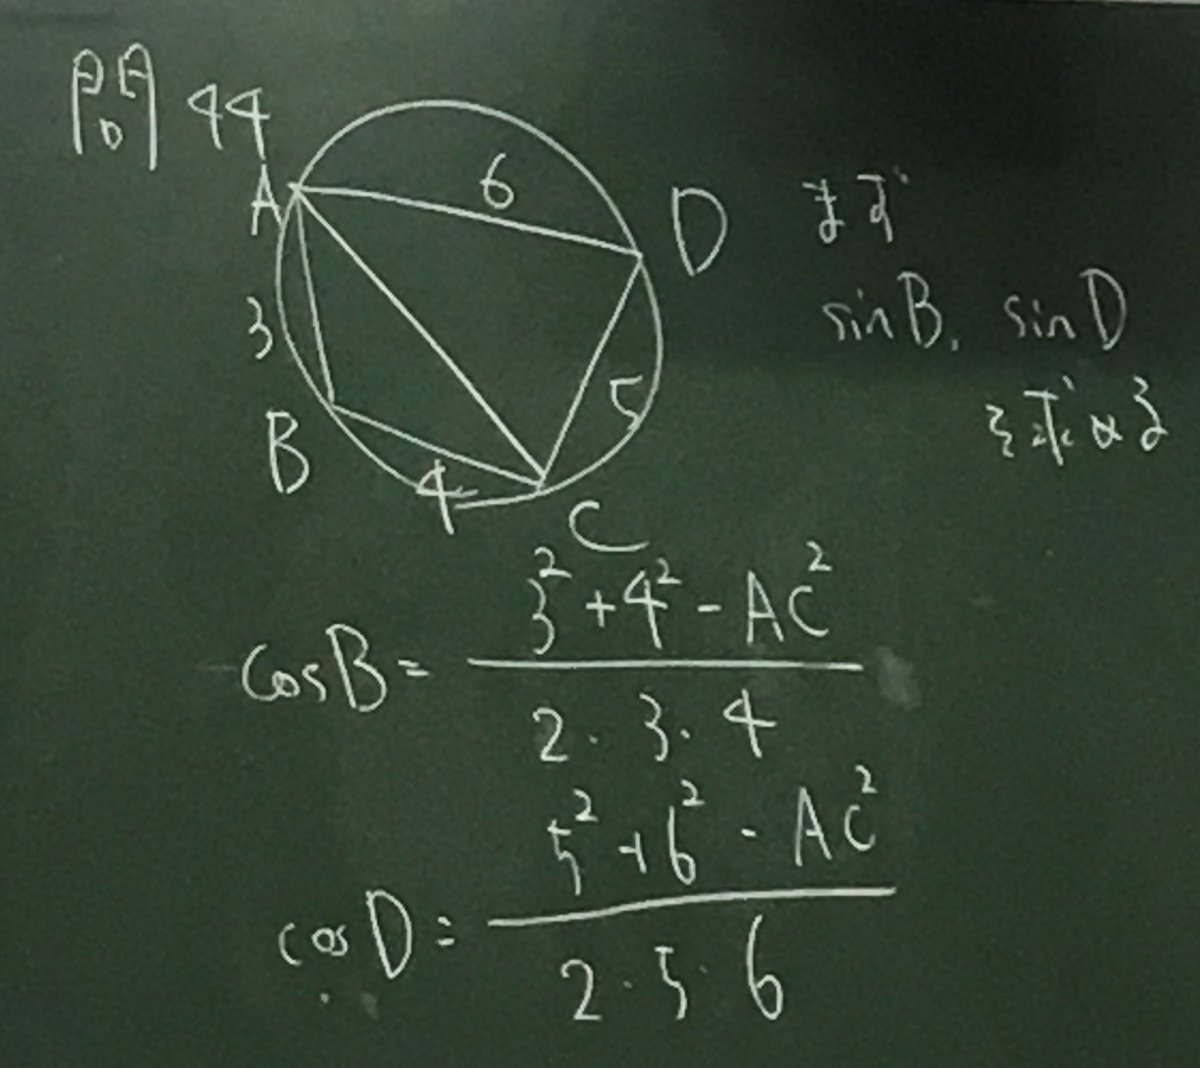 問44
A
6
D
3
B
4
5
C
まず
sinB, sinD
を求める
cosB = (3² + 4² - AC²) / (2・3・4)
cosD = (5² + 6² - AC²) / (2・5・6)